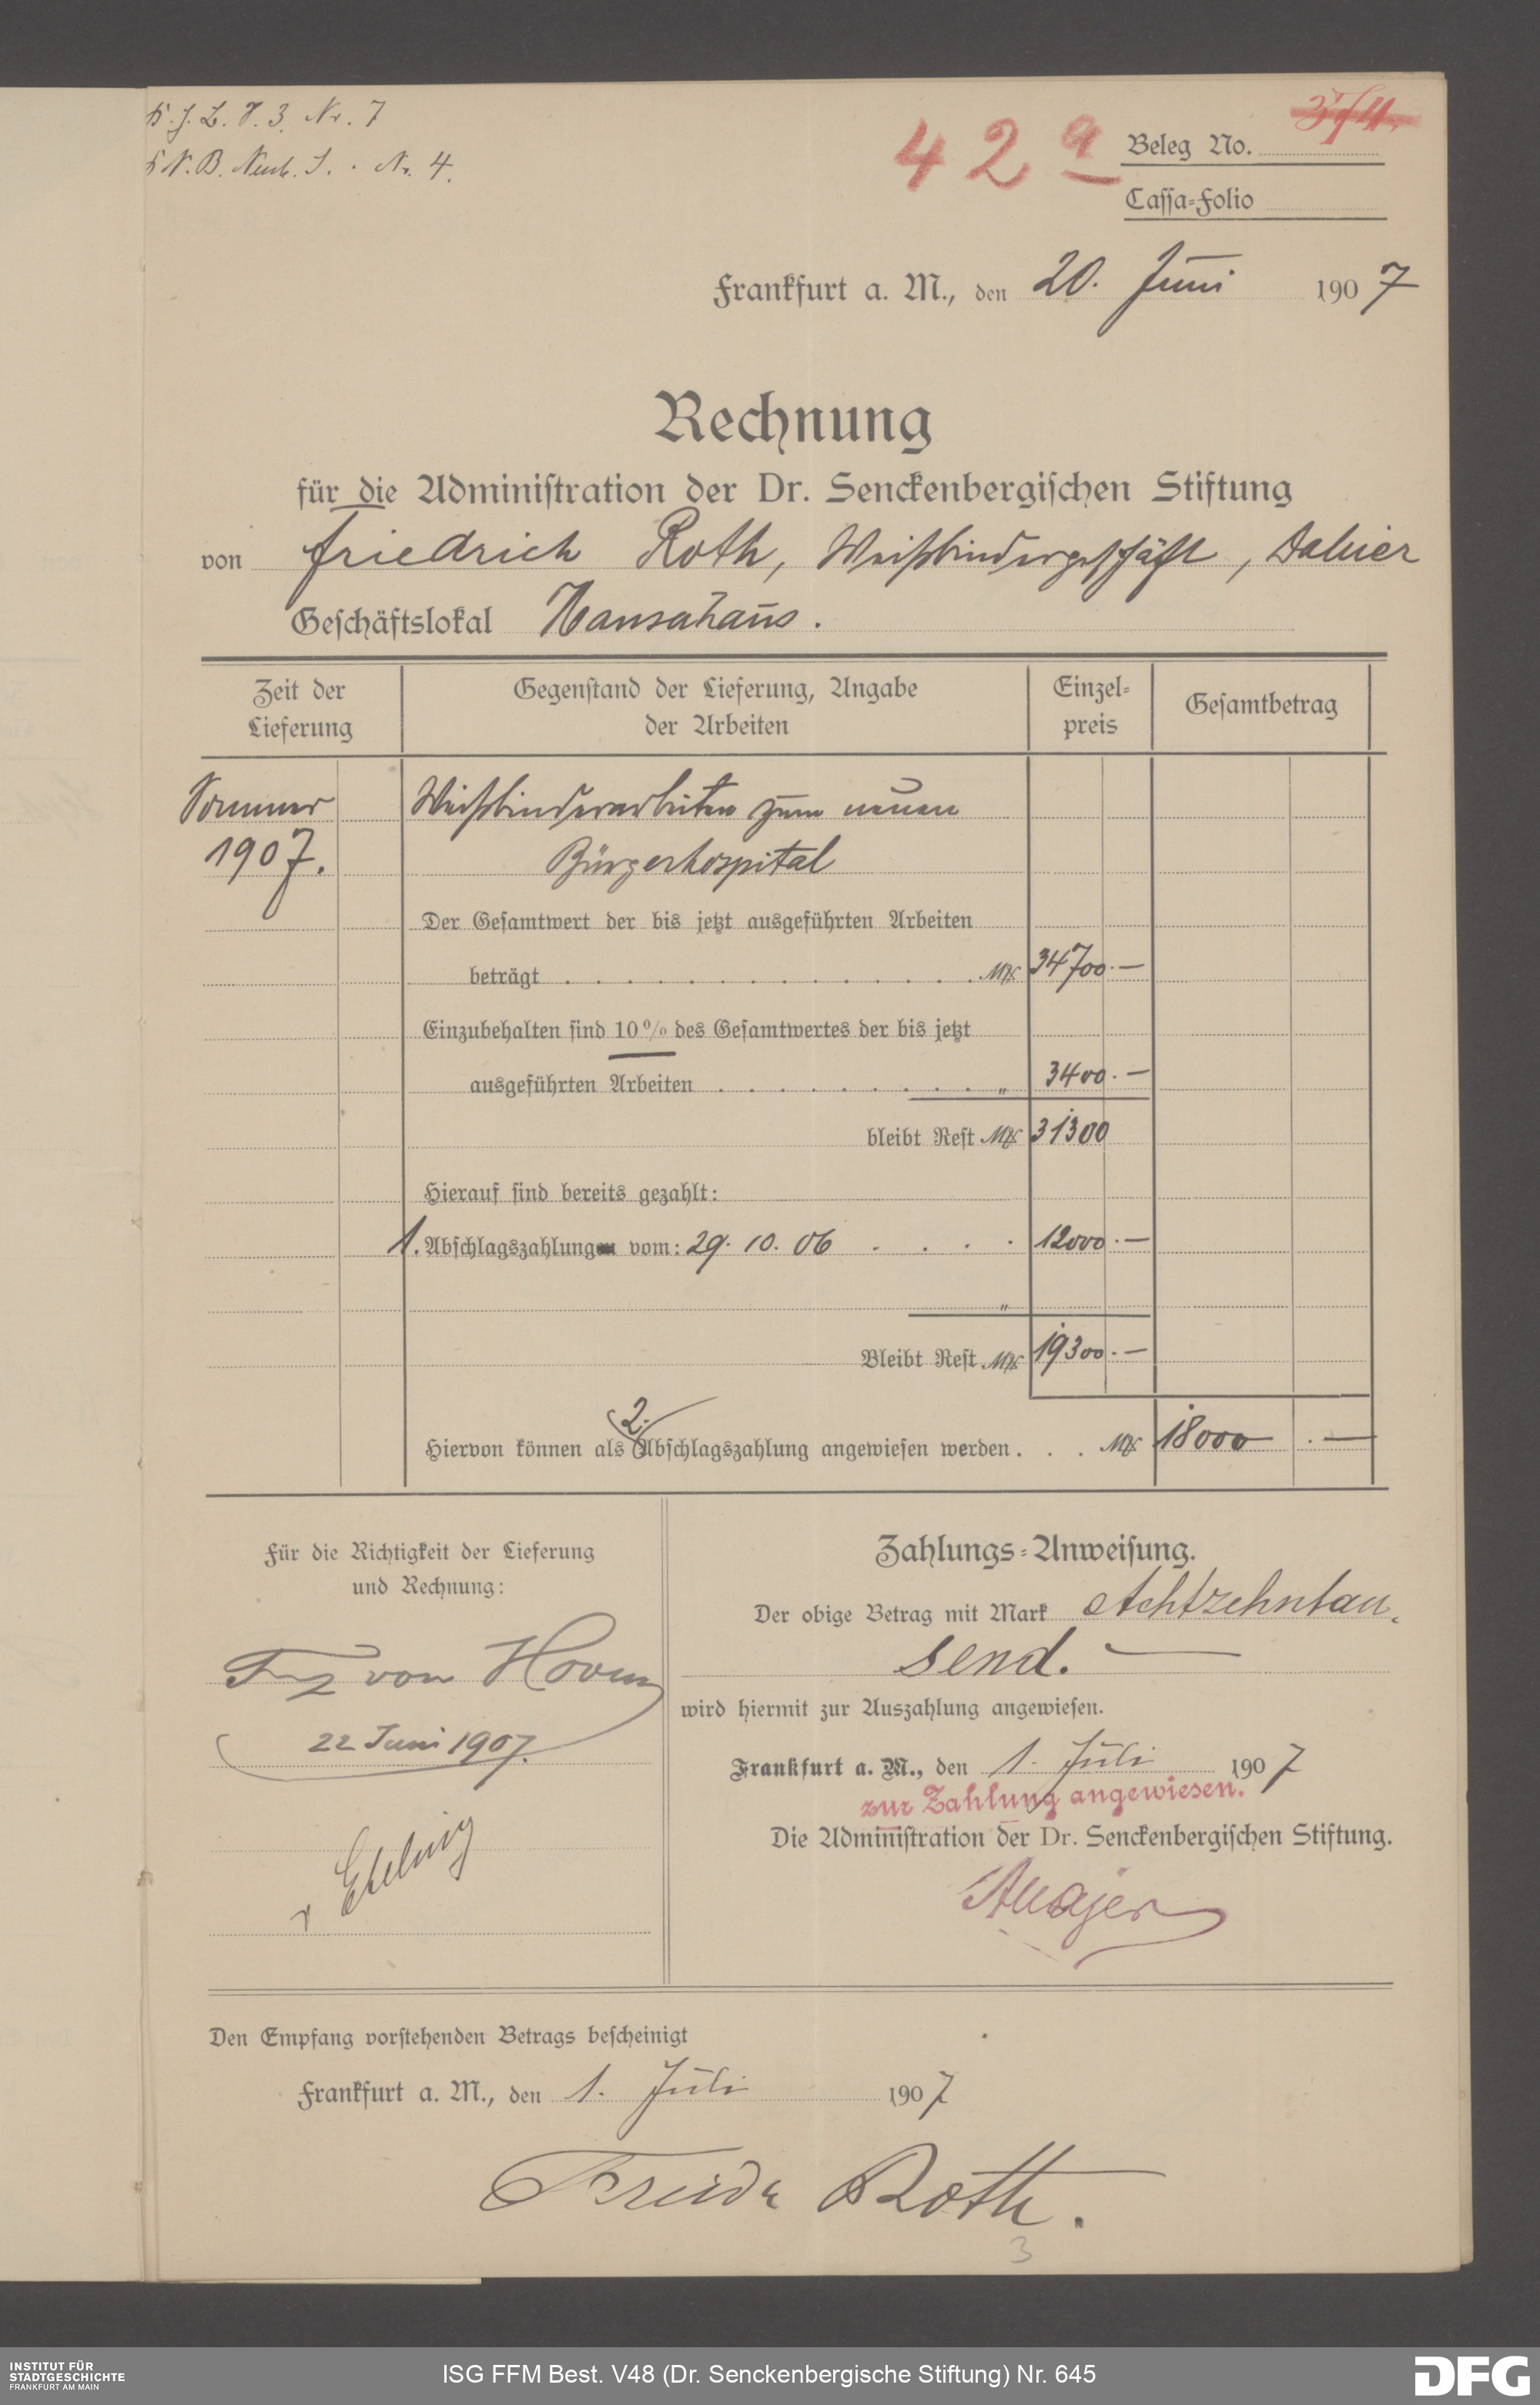 H. J. B. V. 3. Nr. 7
H N. B. Neub. J. . Nr. 4.
42a
Beleg No.
Cassa-Folio
Frankfurt a. M., den 20. Juni 1907
Rechnung
für die Administration der Dr. Senckenbergischen Stiftung
von Friedrich Roth, Weißbindergeschäft, Dahier
Geschäftslokal Hansahaus.
Zeit der Lieferung
Gegenstand der Lieferung, Angabe der Arbeiten
Einzel-preis
Gesamtbetrag
Sommer Weißbinderarbeiten zum neuen
1907. Bürgerhospital
Der Gesamtwert der bis jetzt ausgeführten Arbeiten
beträgt . . . . . . . . . . . . . . Mk 34700.—
Einzubehalten sind 10% des Gesamtwertes der bis jetzt
ausgeführten Arbeiten . . . . . . . . . „ 3400.—
bleibt Rest Mk 31300
Hierauf sind bereits gezahlt:
1. Abschlagszahlung vom: 29. 10. 06 . . . . 12000.—
„
Bleibt Rest Mk 19300.—
2.
Hiervon können als Abschlagszahlung angewiesen werden . . . Mk 18000 .—
Für die Richtigkeit der Lieferung
und Rechnung:
Frz von Hoven
22 Juni 1907.
Zahlungs-Anweisung.
Der obige Betrag mit Mark Achtzehntau-
send. —
wird hiermit zur Auszahlung angewiesen.
Frankfurt a. M., den 1. Juli 1907
zur Zahlung angewiesen.
Die Administration der Dr. Senckenbergischen Stiftung.
Den Empfang vorstehenden Betrags bescheinigt
Frankfurt a. M., den 1. Juli 1907
Roth.
3
INSTITUT FÜR
STADTGESCHICHTE
FRANKFURT AM MAIN
ISG FFM Best. V48 (Dr. Senckenbergische Stiftung) Nr. 645
DFG